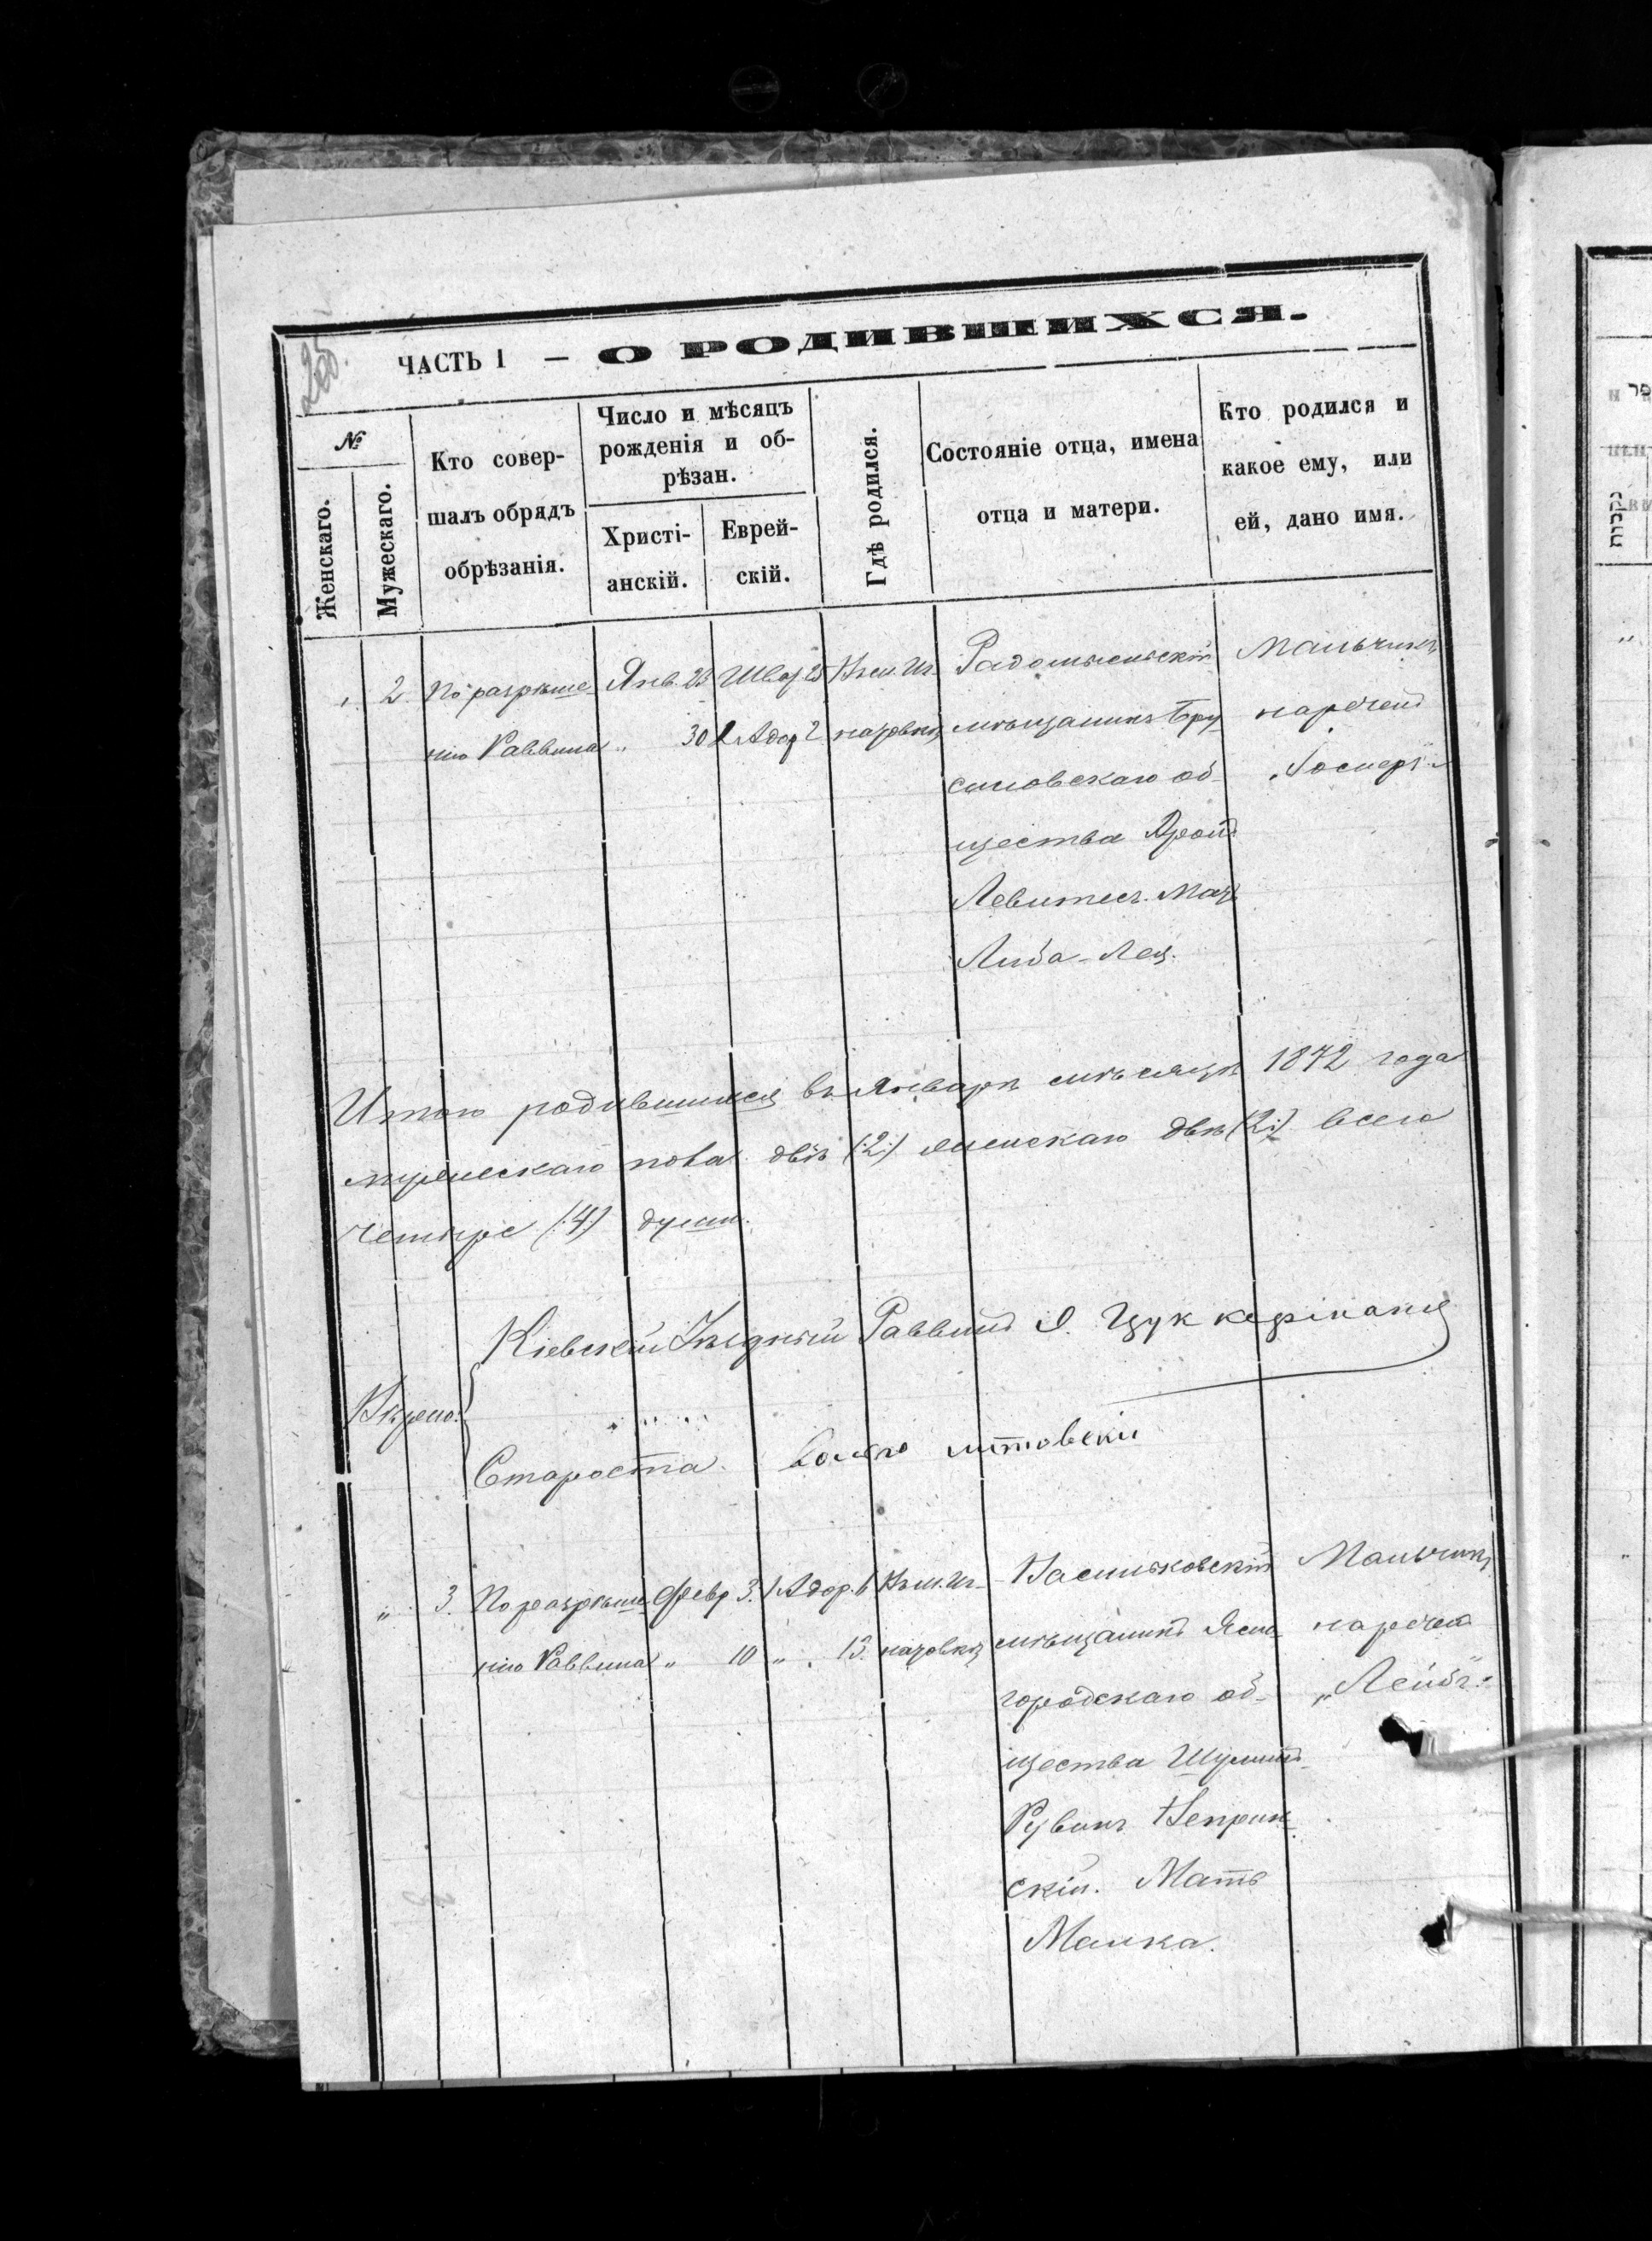 ЧАСТЬ I — О РОДИВШИХСЯ.
№
Женскаго.
Мужескаго.
Кто совер-
шалъ обрядъ
обрѣзанія.
Число и мѣсяцъ
рожденія и об-
рѣзан.
Христі-
анскій.
Еврей-
скій.
Гдѣ родился.
Состояніе отца, имена
отца и матери.
Кто родился и
какое ему, или
ей, дано имя.
2 По разрѣше-
нію Раввина
Янв. 23
„ 30
Шват 25
Адор 2
въ м. Иг-
натовкѣ
Радомысльскій
мѣщанинъ Бру-
силовскаго об-
щества Аронъ
Левитесъ. Мать
Либа-Лея.
Мальчикъ
нареченъ
Итого родившихся въ Январѣ мѣсяцѣ 1872 года
мужескаго пола двѣ (:2:) женскаго двѣ (:2:) всего
четыре (:4:) души.
Кіевскій Уѣздный Раввинъ Цуккерманъ
Вѣрно:
Староста литовски
„ 3. По разрѣше-
нію Раввина
Февр 3.
„ 10
Адор. 6
„ 13.
въ м. Иг-
натовкѣ
Васильковскій
мѣщанинъ Ясно-
городскаго об-
щества Шулимъ-
Рувинъ
скій. Мать
Малка.
Мальчикъ
нареченъ
„Лейбъ“.
נקבות